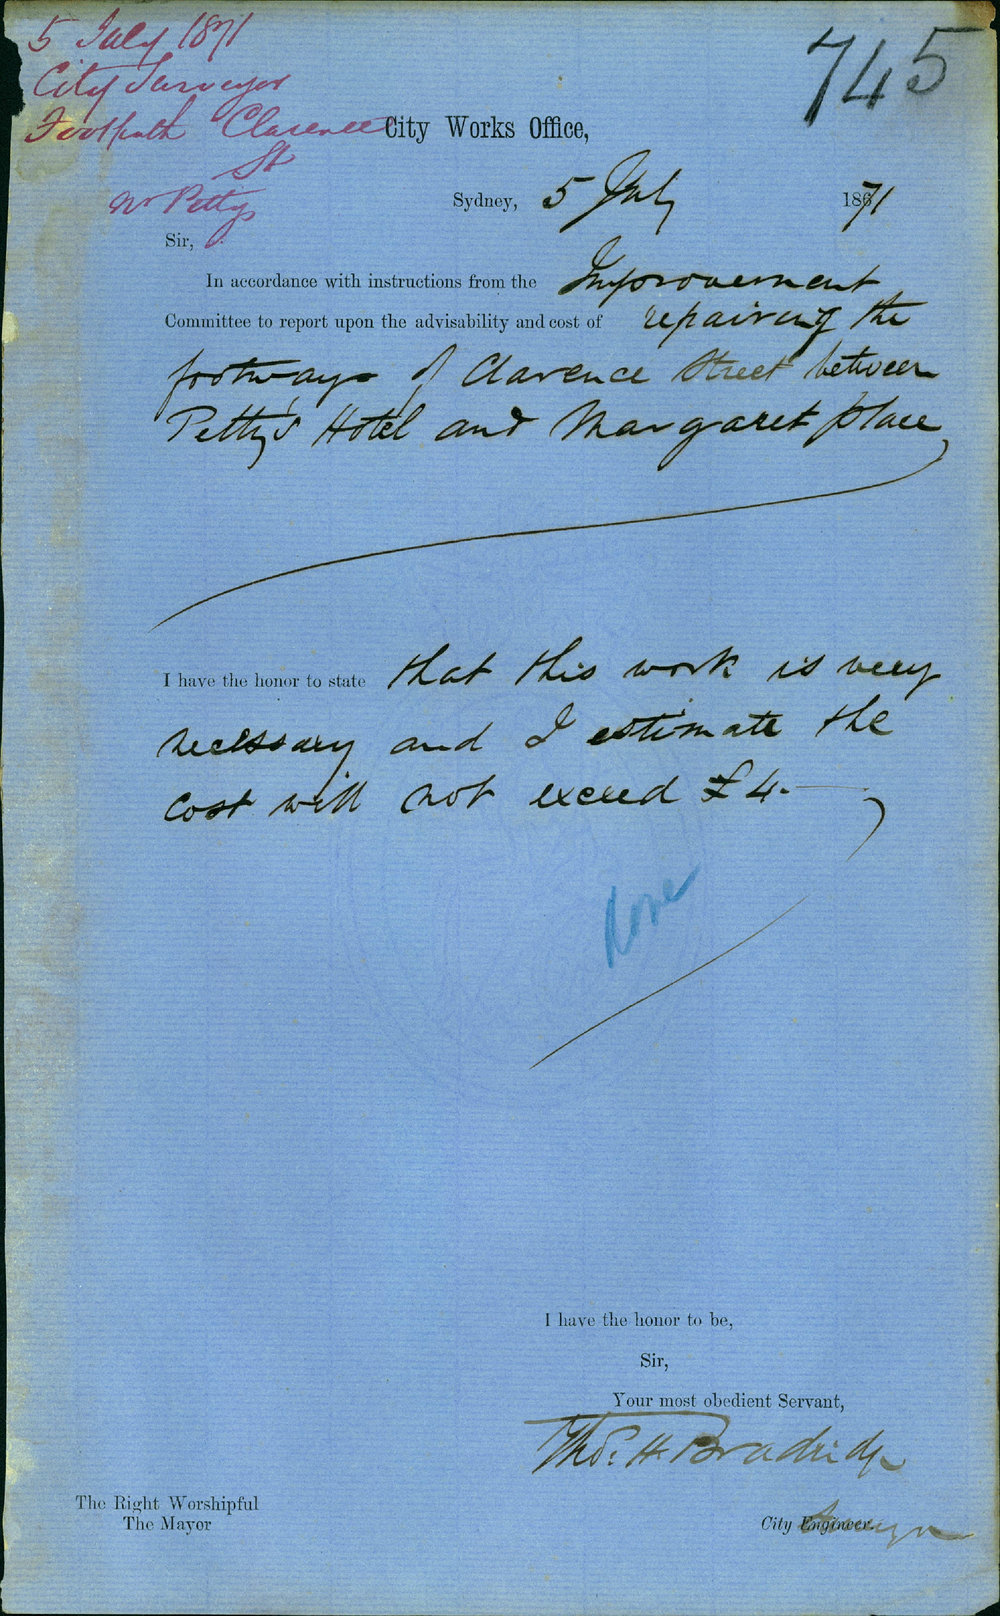 5 July 1871
City Surveyor
Footpath Clarence
St
Nr Pettys
745
City Works Office,
Sydney, 5 July 1871
Sir,
In accordance with instructions from the Improvement
Committee to report upon the advisability and cost of repairing the
footways of Clarence Street between
Petty's Hotel and Margaret place
I have the honor to state that this work is very
necessary and I estimate the
cost will not exceed £4.
Done
I have the honor to be,
Sir,
Your most obedient Servant,
Thos. H. Bradridge
The Right Worshipful
The Mayor
City Engineer. Surveyor